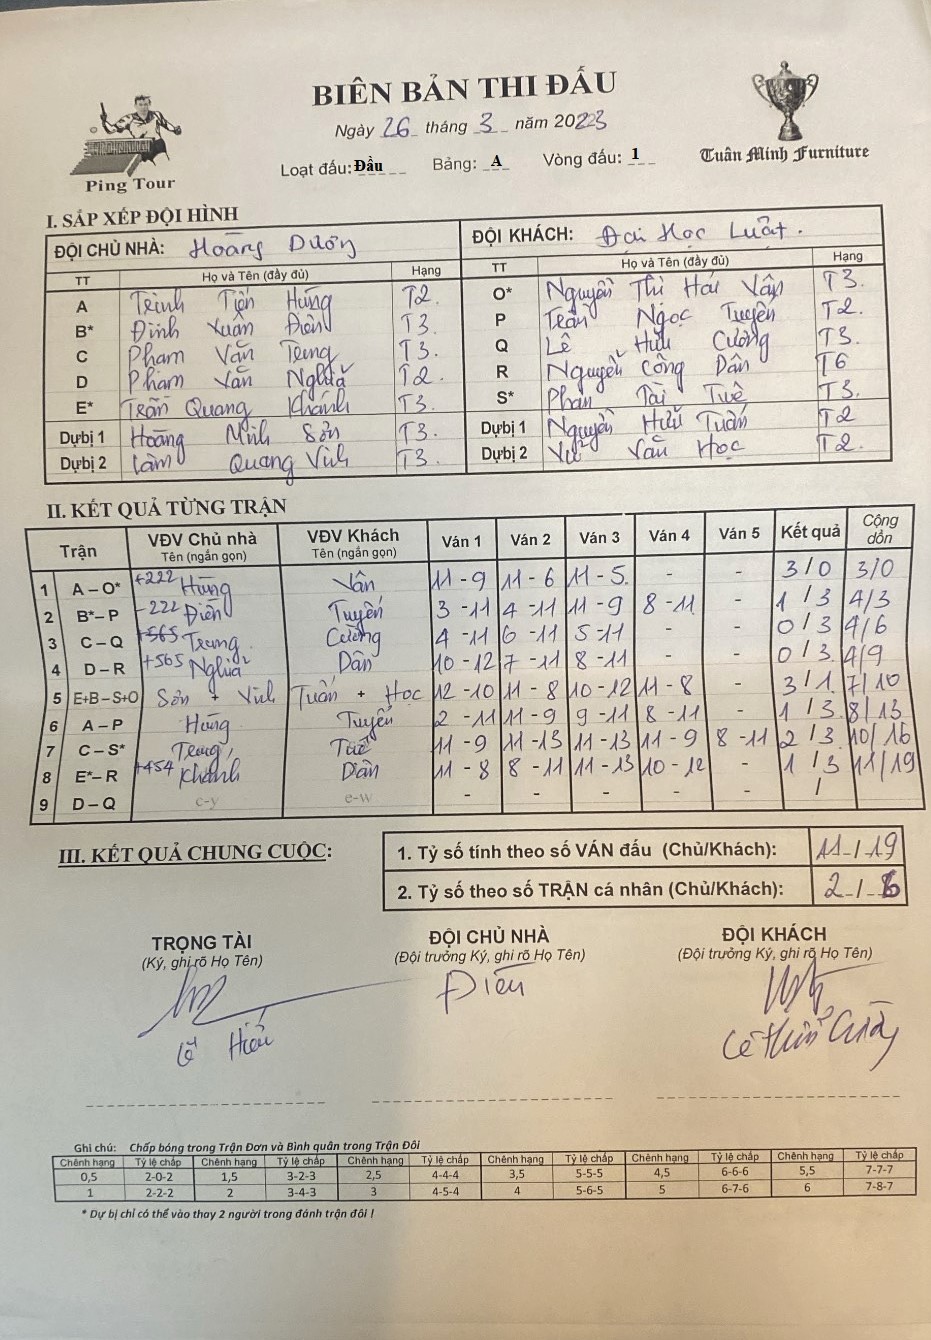 BIÊN BẢN THI ĐẤU
Ngày 26 tháng 3 năm 2023
Loạt đấu: Đầu Bảng: A Vòng đấu: 1
Ping Tour
Tuân Minh Furniture
I. SẮP XẾP ĐỘI HÌNH
ĐỘI CHỦ NHÀ: Hoàng Dương ĐỘI KHÁCH: Đại Học Luật.
TT Họ và Tên (đầy đủ) Hạng TT Họ và Tên (đầy đủ) Hạng
A Trịnh Tiến Hùng T2. O* Nguyễn Thị Hải Vân T3.
B* Đinh Xuân Điền T3. P Trần Ngọc Tuyến T2.
C Phạm Văn Trung T3. Q Lê Hữu Cường T3.
D Phạm Văn Nghĩa T2. R Nguyễn Công Dân T6
E* Trần Quang Khánh T3. S* Phan Tài Tuê T3.
Dự bị 1 Hoàng Minh Sơn T3. Dự bị 1 Nguyễn Hữu Tuấn T2
Dự bị 2 Lâm Quang Vinh T3. Dự bị 2 Vũ Văn Học T2.
II. KẾT QUẢ TỪNG TRẬN
Trận VĐV Chủ nhà Tên (ngắn gọn) VĐV Khách Tên (ngắn gọn) Ván 1 Ván 2 Ván 3 Ván 4 Ván 5 Kết quả Cộng dồn
1 A – O* +222 Hùng Vân 11 - 9 11 - 6 11 - 5. - - 3/0 3/0
2 B* – P -222 Điền Tuyến 3 - 11 4 - 11 11 - 9 8 - 11 - 1/3 4/3
3 C – Q +565 Trung Cường 4 - 11 6 - 11 5 - 11 - - 0/3 4/6
4 D – R +565 Nghĩa Dân 10 - 12 7 - 11 8 - 11 - - 0/3. 4/9
5 E+B – S+O Sơn + Vinh Tuấn + Học 12 - 10 11 - 8 10 - 12 11 - 8 - 3/1. 7/10
6 A – P Hùng Tuyến 2 - 11 11 - 9 9 - 11 8 - 11 - 1/3. 8/13
7 C – S* Trung Tuê 11 - 9 11 - 13 11 - 13 11 - 9 8 - 11 2/3. 10/16
8 E* – R +454 Khánh Dân 11 - 8 8 - 11 11 - 13 10 - 12 - 1/3 11/19
9 D – Q c-y e-w - - - - - /
III. KẾT QUẢ CHUNG CUỘC:
1. Tỷ số tính theo số VÁN đấu (Chủ/Khách): 11 / 19
2. Tỷ số theo số TRẬN cá nhân (Chủ/Khách): 2 / 6
TRỌNG TÀI ĐỘI CHỦ NHÀ ĐỘI KHÁCH
(Ký, ghi rõ Họ Tên) (Đội trưởng Ký, ghi rõ Họ Tên) (Đội trưởng Ký, ghi rõ Họ Tên)
Điền
Lê Hiếu Lê Hữu Cường
Ghi chú: Chấp bóng trong Trận Đơn và Bình quân trong Trận Đôi
Chênh hạng Tỷ lệ chấp Chênh hạng Tỷ lệ chấp Chênh hạng Tỷ lệ chấp Chênh hạng Tỷ lệ chấp Chênh hạng Tỷ lệ chấp Chênh hạng Tỷ lệ chấp
0,5 2-0-2 1,5 3-2-3 2,5 4-4-4 3,5 5-5-5 4,5 6-6-6 5,5 7-7-7
1 2-2-2 2 3-4-3 3 4-5-4 4 5-6-5 5 6-7-6 6 7-8-7
* Dự bị chỉ có thể vào thay 2 người trong đánh trận đôi !